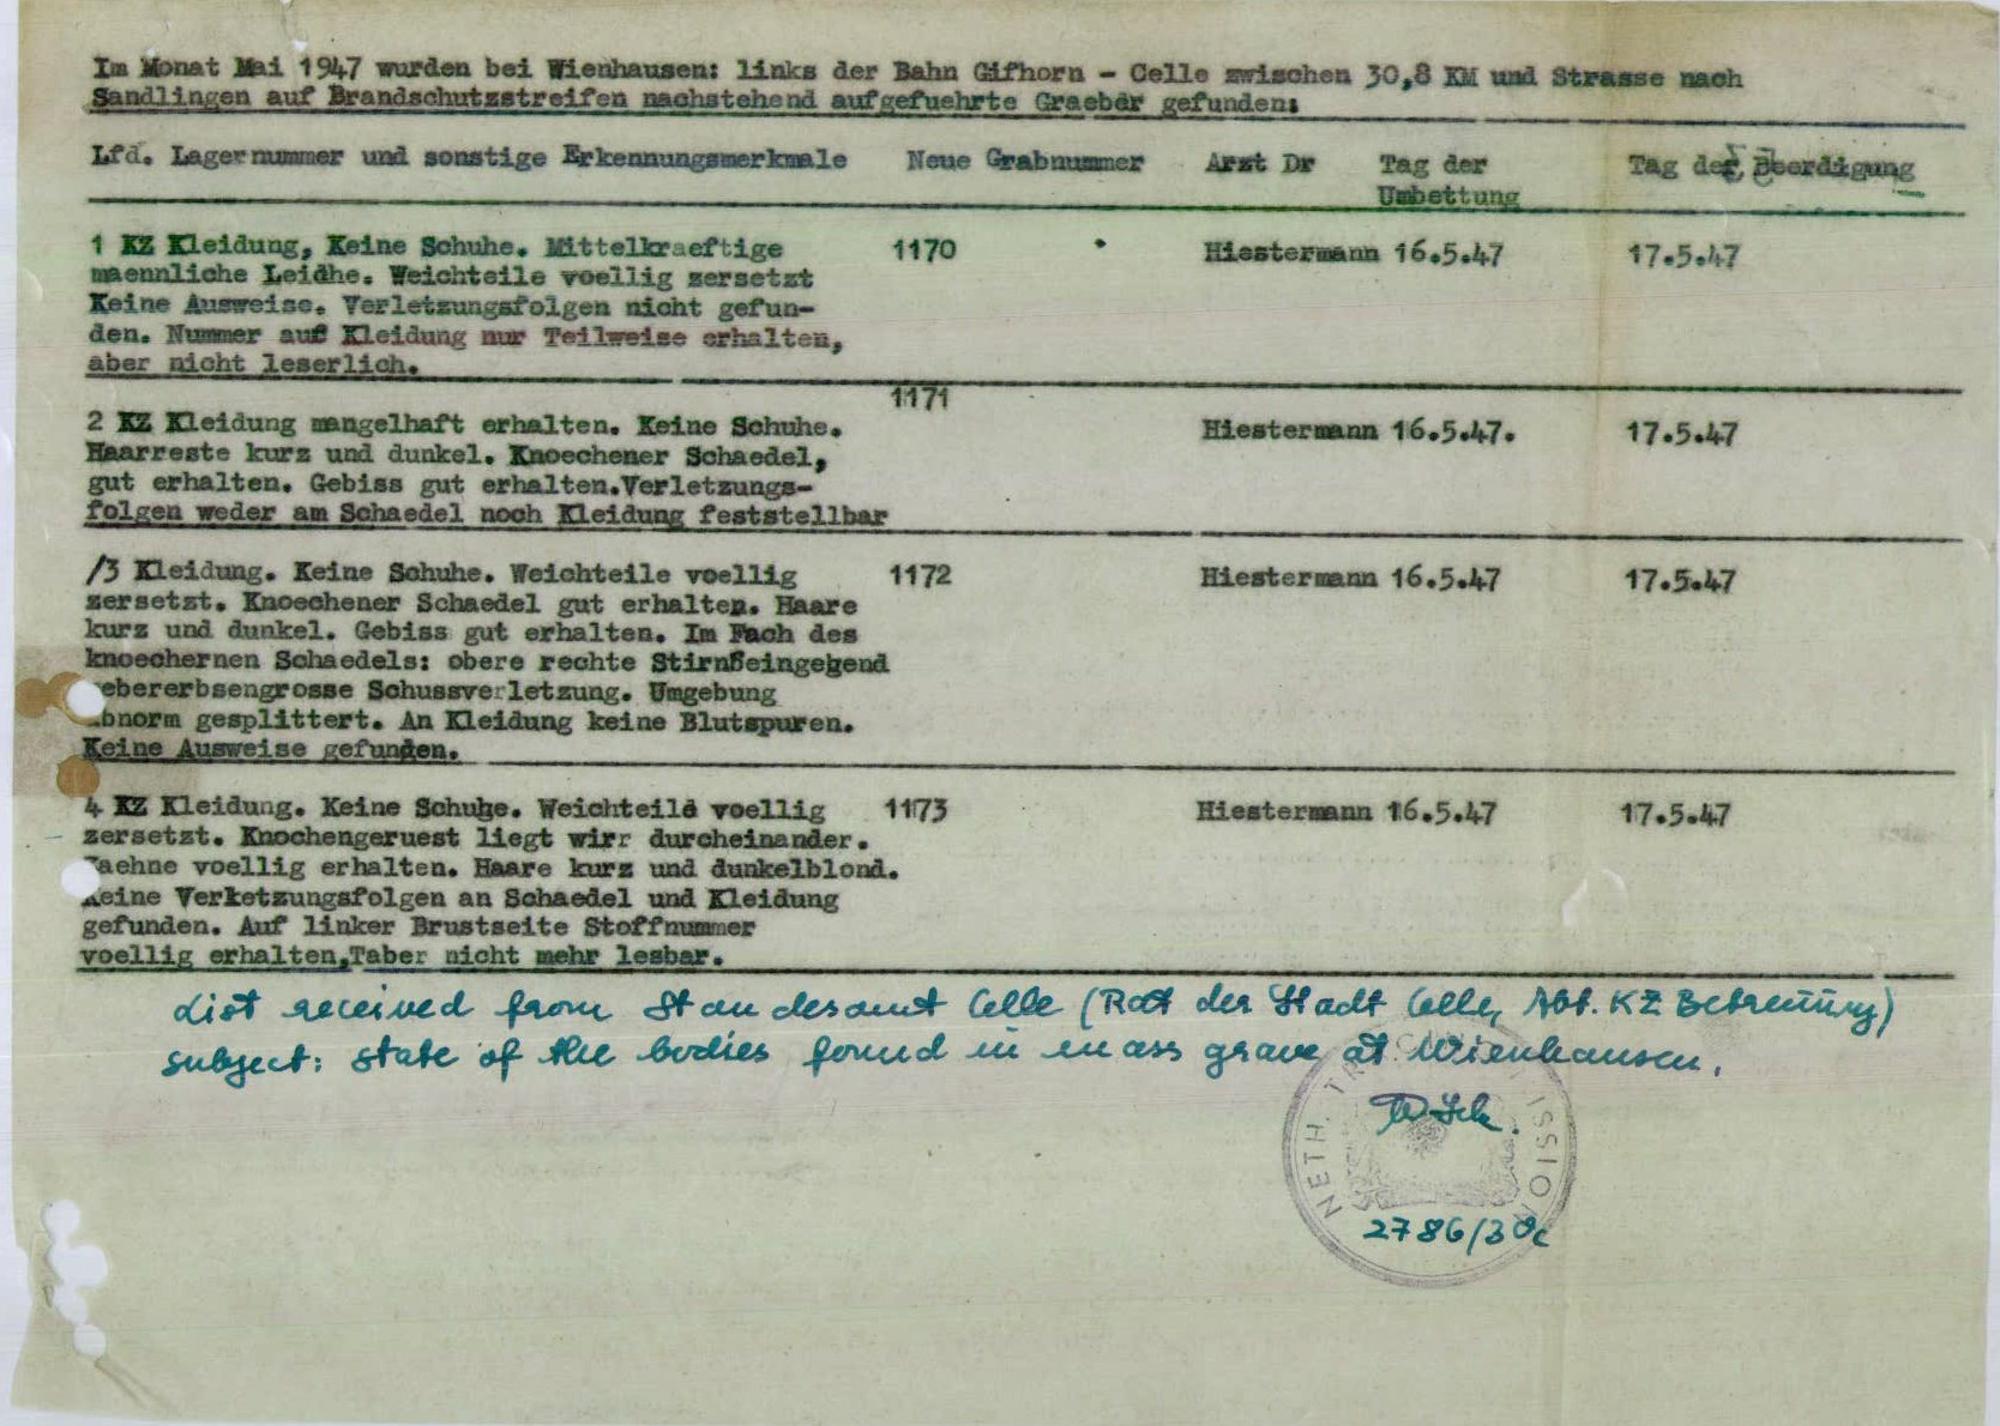 Im Monat Mai 1947 wurden bei Wienhausen: links der Bahn Gifhorn - Celle zwischen 30,8 KM und Strasse nach
Sandlingen auf Brandschutzstreifen nachstehend aufgefuehrte Graeber gefunden:
Lfd. Lagernummer und sonstige Erkennungsmerkmale Neue Grabnummer Arzt Dr Tag der Tag der Beerdigung
Umbettung
1 KZ Kleidung, Keine Schuhe. Mittelkraeftige 1170 Hiestermann 16.5.47 17.5.47
maennliche Leidhe. Weichteile voellig zersetzt
Keine Ausweise. Verletzungsfolgen nicht gefun-
den. Nummer auf Kleidung nur Teilweise erhalten,
aber nicht leserlich.
1171
2 KZ Kleidung mangelhaft erhalten. Keine Schuhe. Hiestermann 16.5.47. 17.5.47
Haarreste kurz und dunkel. Knoechener Schaedel,
gut erhalten. Gebiss gut erhalten.Verletzungs-
folgen weder am Schaedel noch Kleidung feststellbar
/3 Kleidung. Keine Schuhe. Weichteile voellig 1172 Hiestermann 16.5.47 17.5.47
zersetzt. Knoechener Schaedel gut erhalten. Haare
kurz und dunkel. Gebiss gut erhalten. Im Fach des
knoechernen Schaedels: obere rechte
ebererbsengrosse Schussverletzung. Umgebung
bnorm gesplittert. An Kleidung keine Blutspuren.
Keine Ausweise gefunden.
4 KZ Kleidung. Keine Schuhe. Weichteile voellig 1173 Hiestermann 16.5.47 17.5.47
zersetzt. Knochengeruest liegt wirr durcheinander.
aehne voellig erhalten. Haare kurz und dunkelblond.
eine Verketzungsfolgen an Schaedel und Kleidung
gefunden. Auf linker Brustseite Stoffnummer
voellig erhalten,Taber nicht mehr lesbar.
List received from Standesamt Celle (Rat der Stadt Celle, Abt. KZ Betreuung)
subject: state of the bodies found in mass grave at Wienhausen.
NETH. TR ISSION
2786/30c